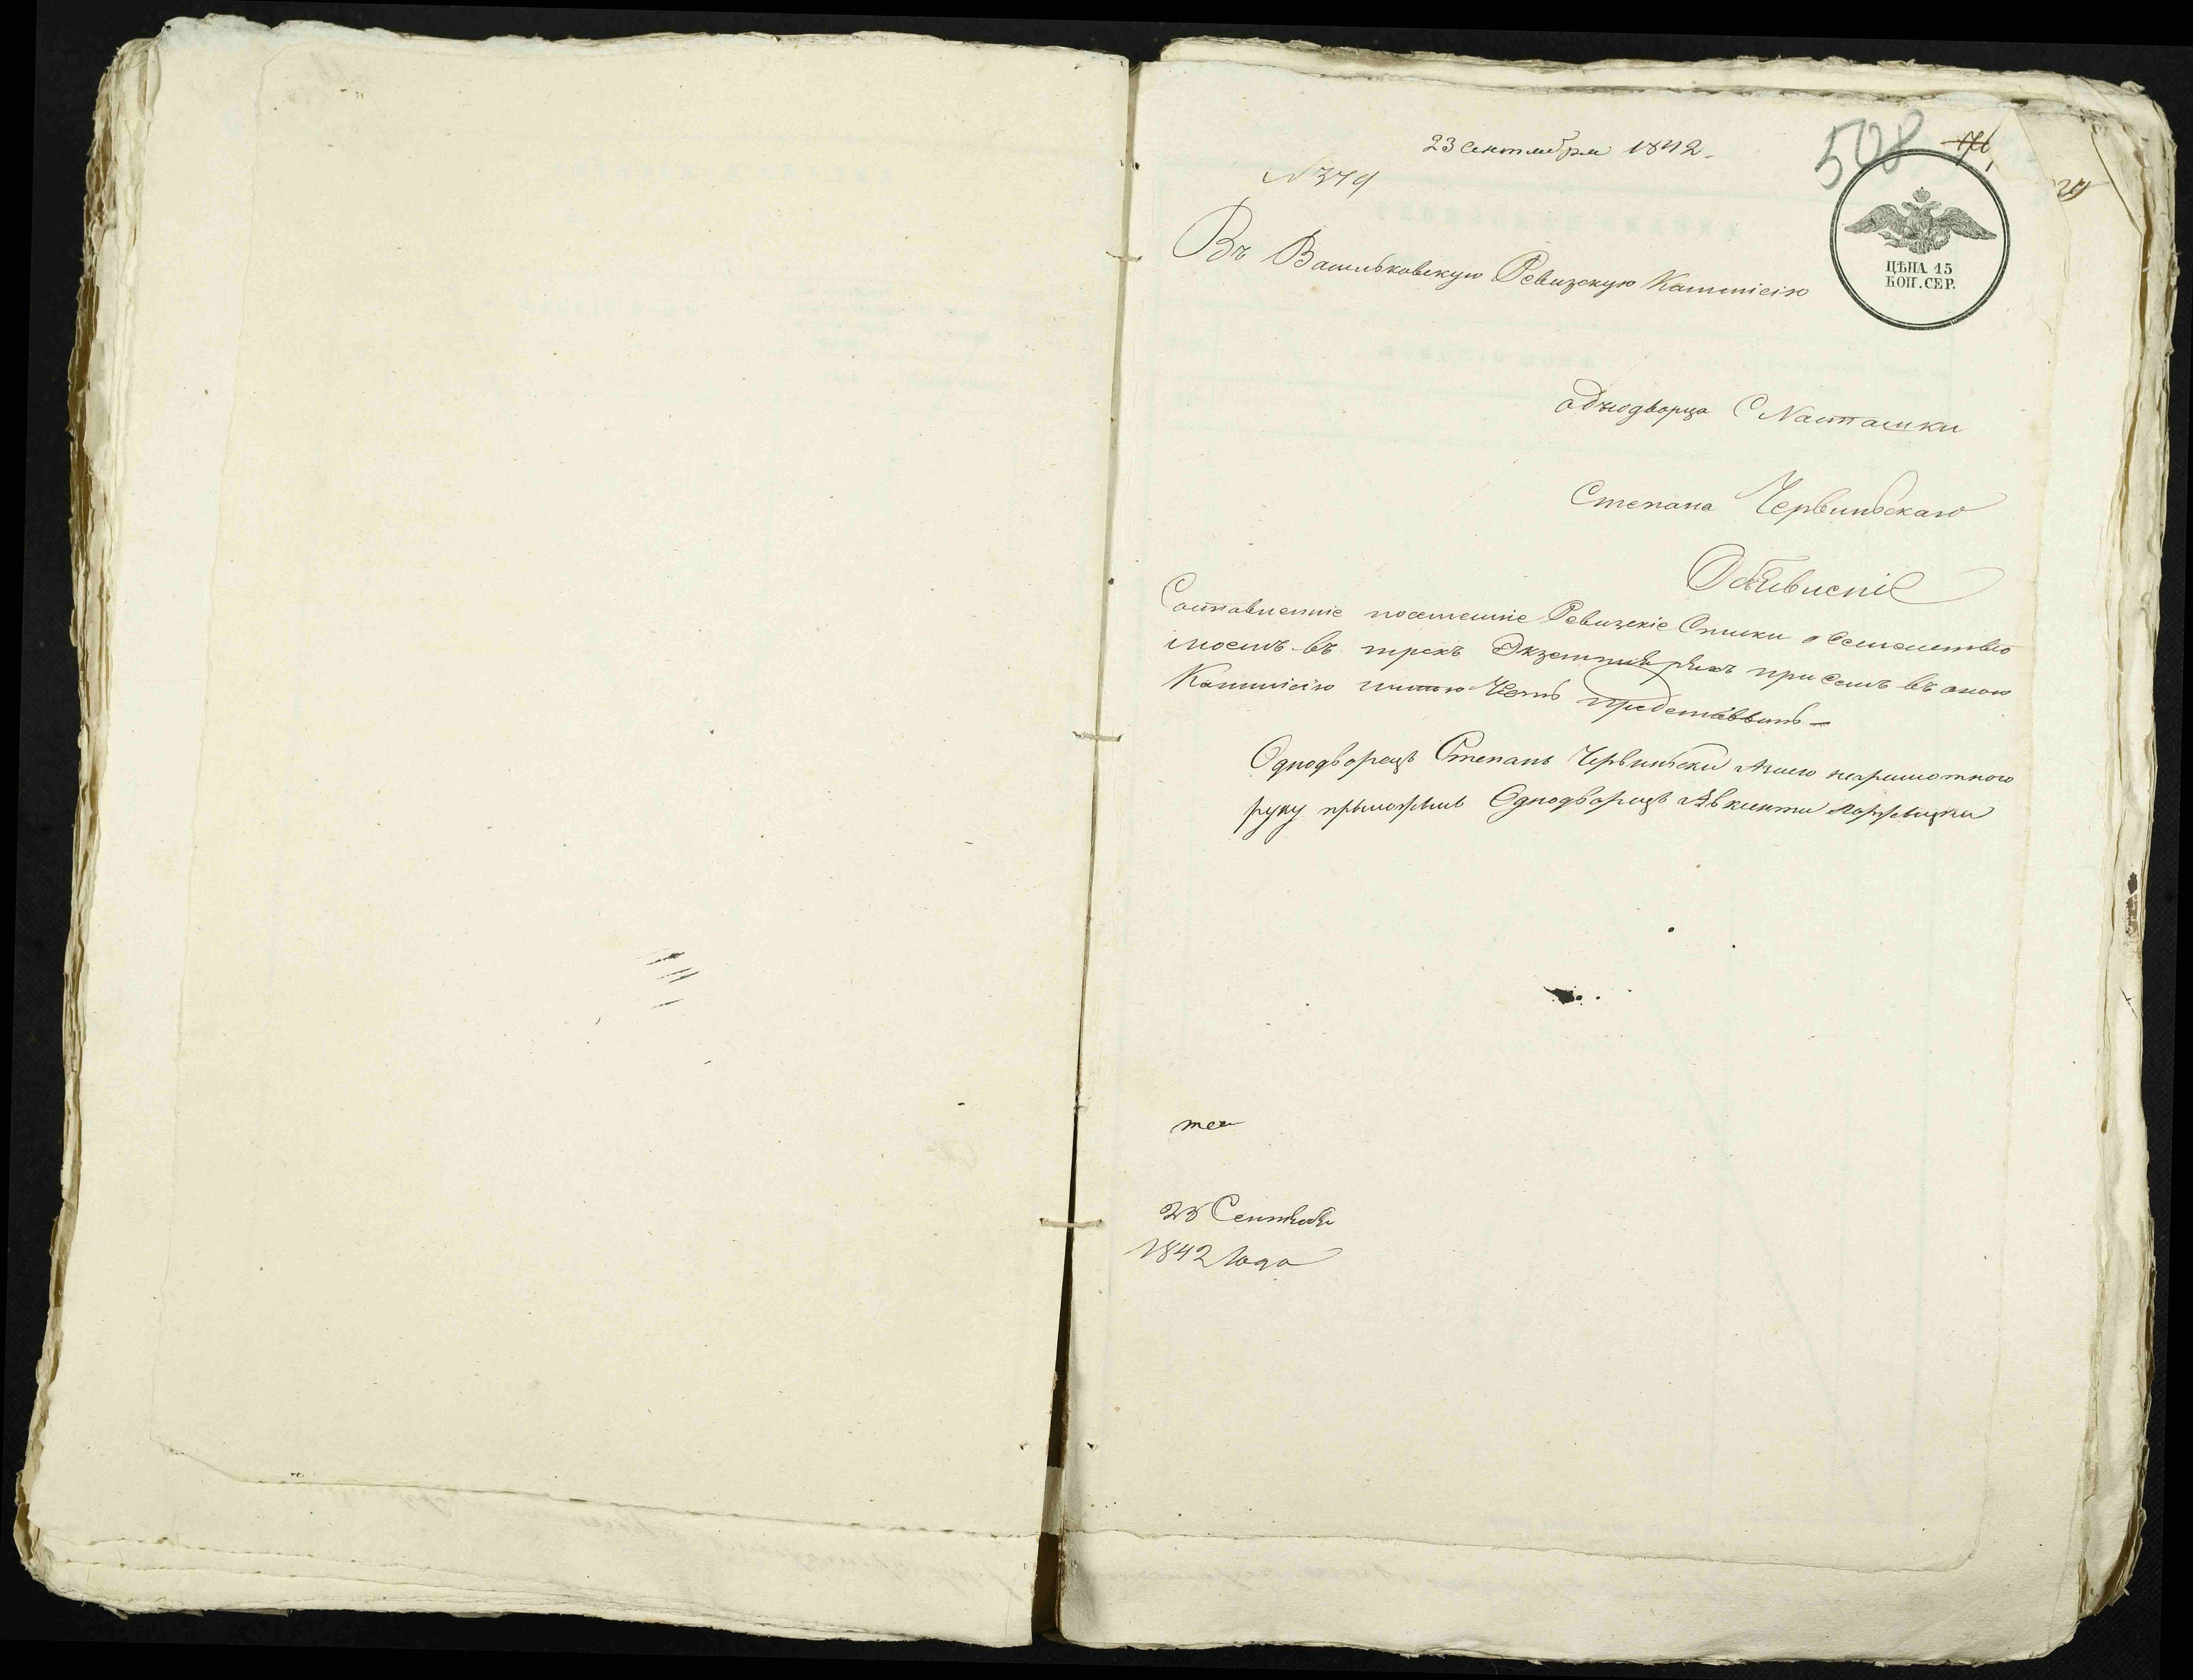 23 Сентября 1842.
508 176
№ 379
ЦѢНА 15
КОП. СЕР.
Въ Васильковскую Ревизскую Коммісію
однодворца С Насташки
Степана Червинскаго
Объявленіе
Составленніе посемейніе Ревизскіе Списки о Семействѣ
моемъ въ трехъ Экземплярахъ при семъ въ оною
Коммисію имѣю Честь представить
Однодворецъ Степанъ Червински а за него неграмотного
руку приложилъ Однодворецъ
23 Сентября
1842 Года